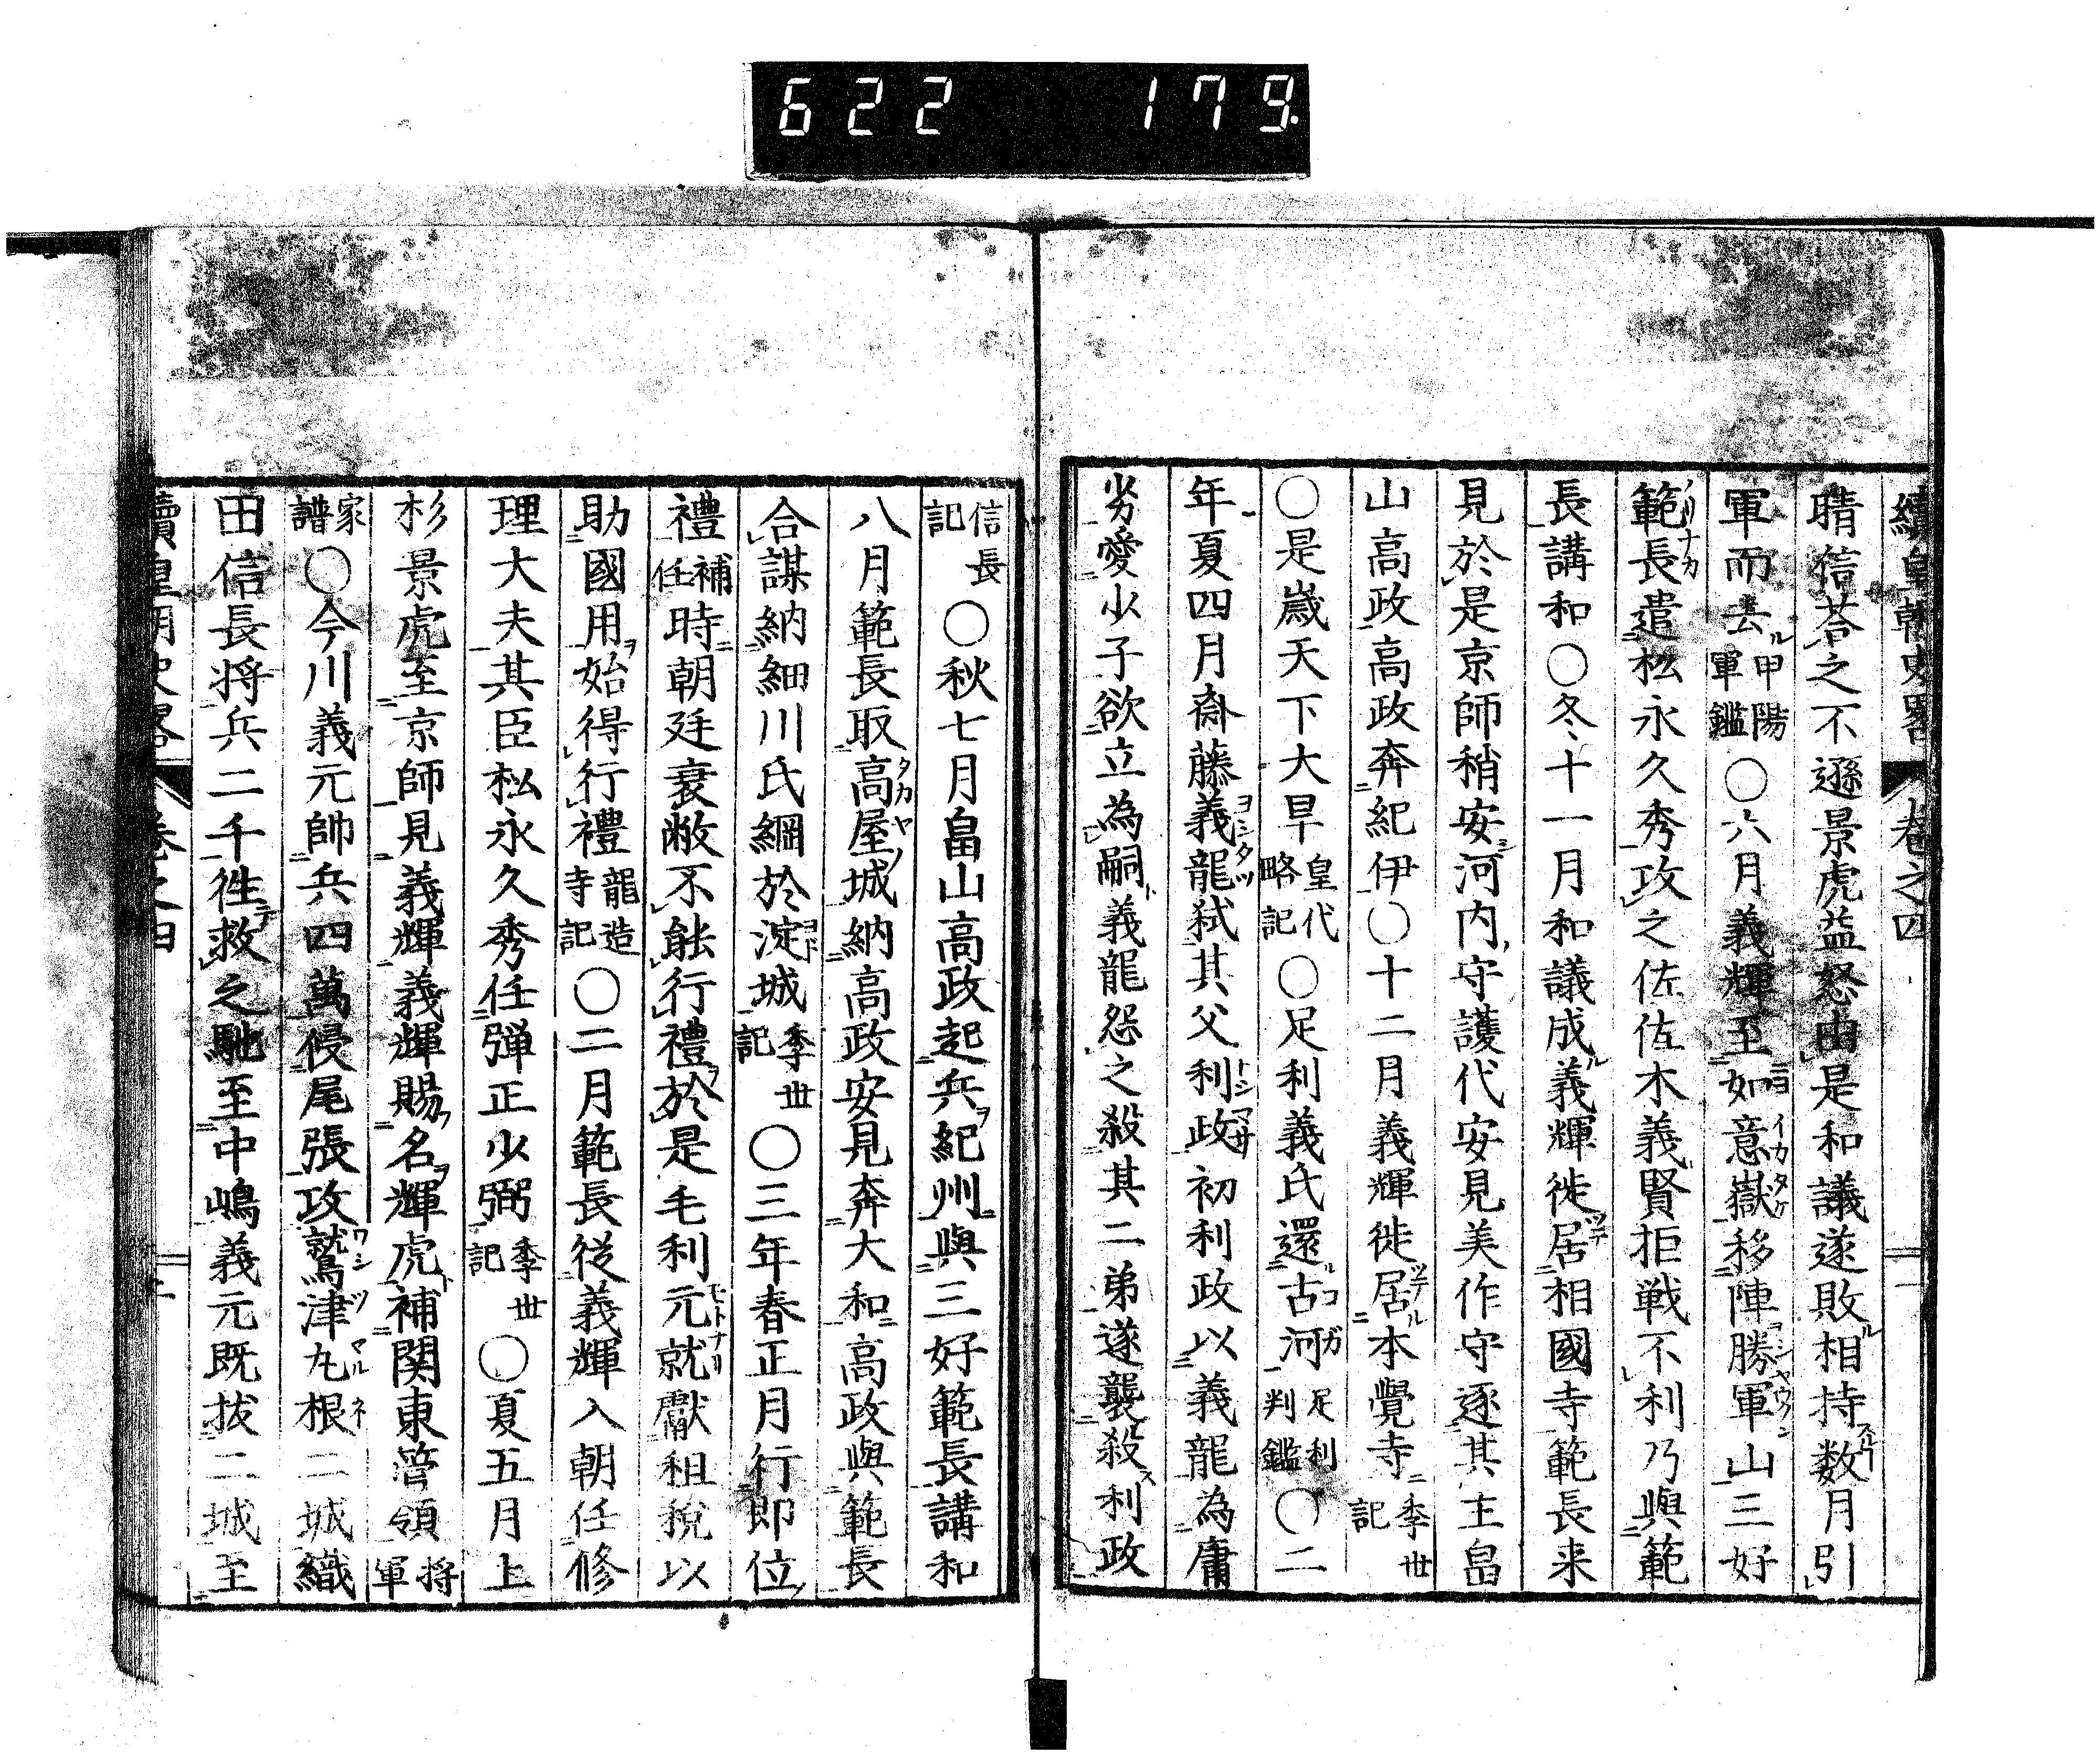 622 179
續皇朝史畧 卷之四
晴信荅之不遜景虎益怒由是和議遂敗相持数月引
軍而去甲陽軍鑑○六月義輝至如意嶽移陣勝軍山三好
範長遣松永久秀攻之佐佐木義賢拒戦不利乃與範
長講和○冬十一月和議成義輝徙居相國寺範長来
見於是京師稍安河内守護代安見美作守逐其主畠
山高政高政奔紀伊○十二月義輝徙居本覺寺季世記
○是歳天下大旱皇代略記○足利義氏還古河足利判鑑○二
年夏四月齋藤義龍弑其父利政初利政以義龍為庸
劣愛少子欲立為嗣義龍怨之殺其二弟遂襲殺利政
信長記○秋七月畠山高政起兵紀州與三好範長講和
八月範長取高屋城納高政安見奔大和高政與範長
合謀納細川氏綱於淀城季世記○三年春正月行即位
禮補任時朝廷衰敝不能行禮於是毛利元就獻租稅以
助國用始得行禮龍造寺記○二月範長從義輝入朝任修
理大夫其臣松永久秀任弾正少弼季世記○夏五月上
杉景虎至京師見義輝義輝賜名輝虎補関東管領将軍
家譜○今川義元帥兵四萬侵尾張攻鷲津丸根二城織
田信長将兵二千徃救之馳至中嶋義元既拔二城至
續皇朝史畧 卷之四